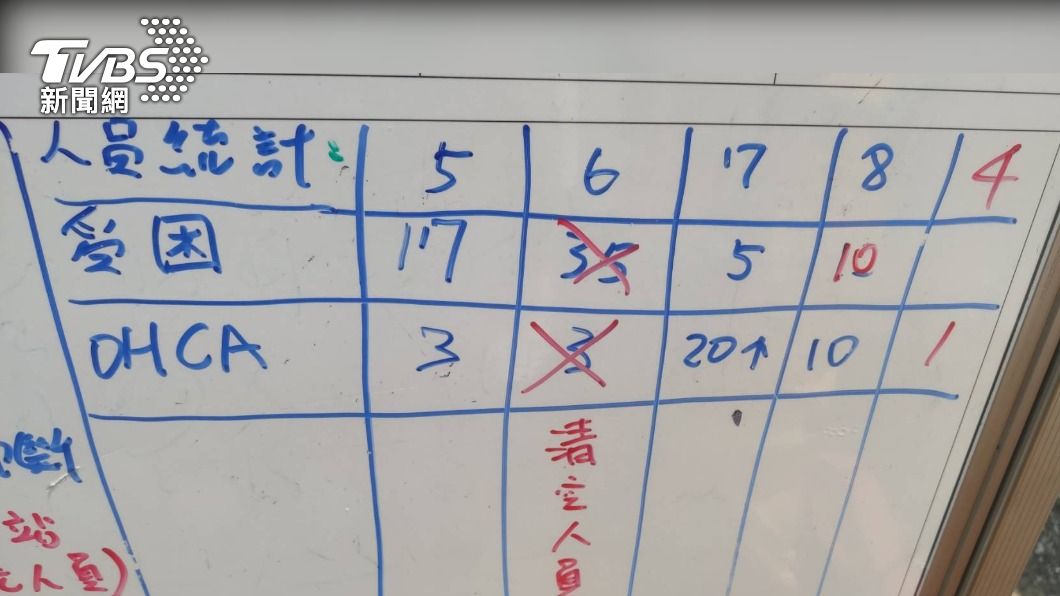 TVBS
新聞網
人員統計: 5 6 7 8 4
受困 17 35 5 10
OHCA 3 3 20↑ 10 1
清空人員
斷
站
人員)